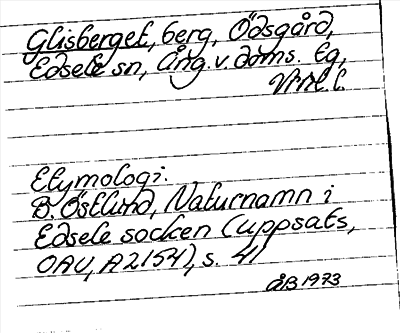 Glisberget, berg, Ödsgård,
Edsele sn, Ång. v. doms. lg,
Vnl. l.
Etymologi:
B. Östlund, Naturnamn i
Edsele socken (uppsats,
OAU, A2154), s. 41
ÅB 1973